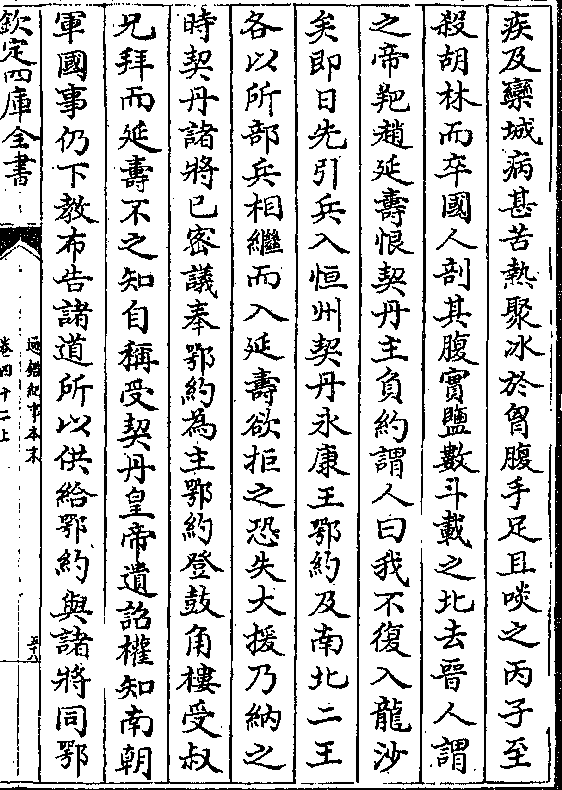 疾及欒城病甚苦熱聚冰於胷腹手足且啖之丙子至
殺胡林而卒國人剖其腹實鹽數斗載之北去晉人謂
之帝羓趙延壽恨契丹主負約謂人曰我不復入龍沙
矣即日先引兵入恒州契丹永康王鄂約及南北二王
各以所部兵相繼而入延壽欲拒之恐失大援乃納之
時契丹諸將已密議奉鄂約為主鄂約登鼓角樓受叔
兄拜而延壽不之知自稱受契丹皇帝遺詔權知南朝
軍國事仍下教布告諸道所以供給鄂約與諸將同鄂
欽定四庫全書
通鑑紀事本末
卷四十二上
五十八